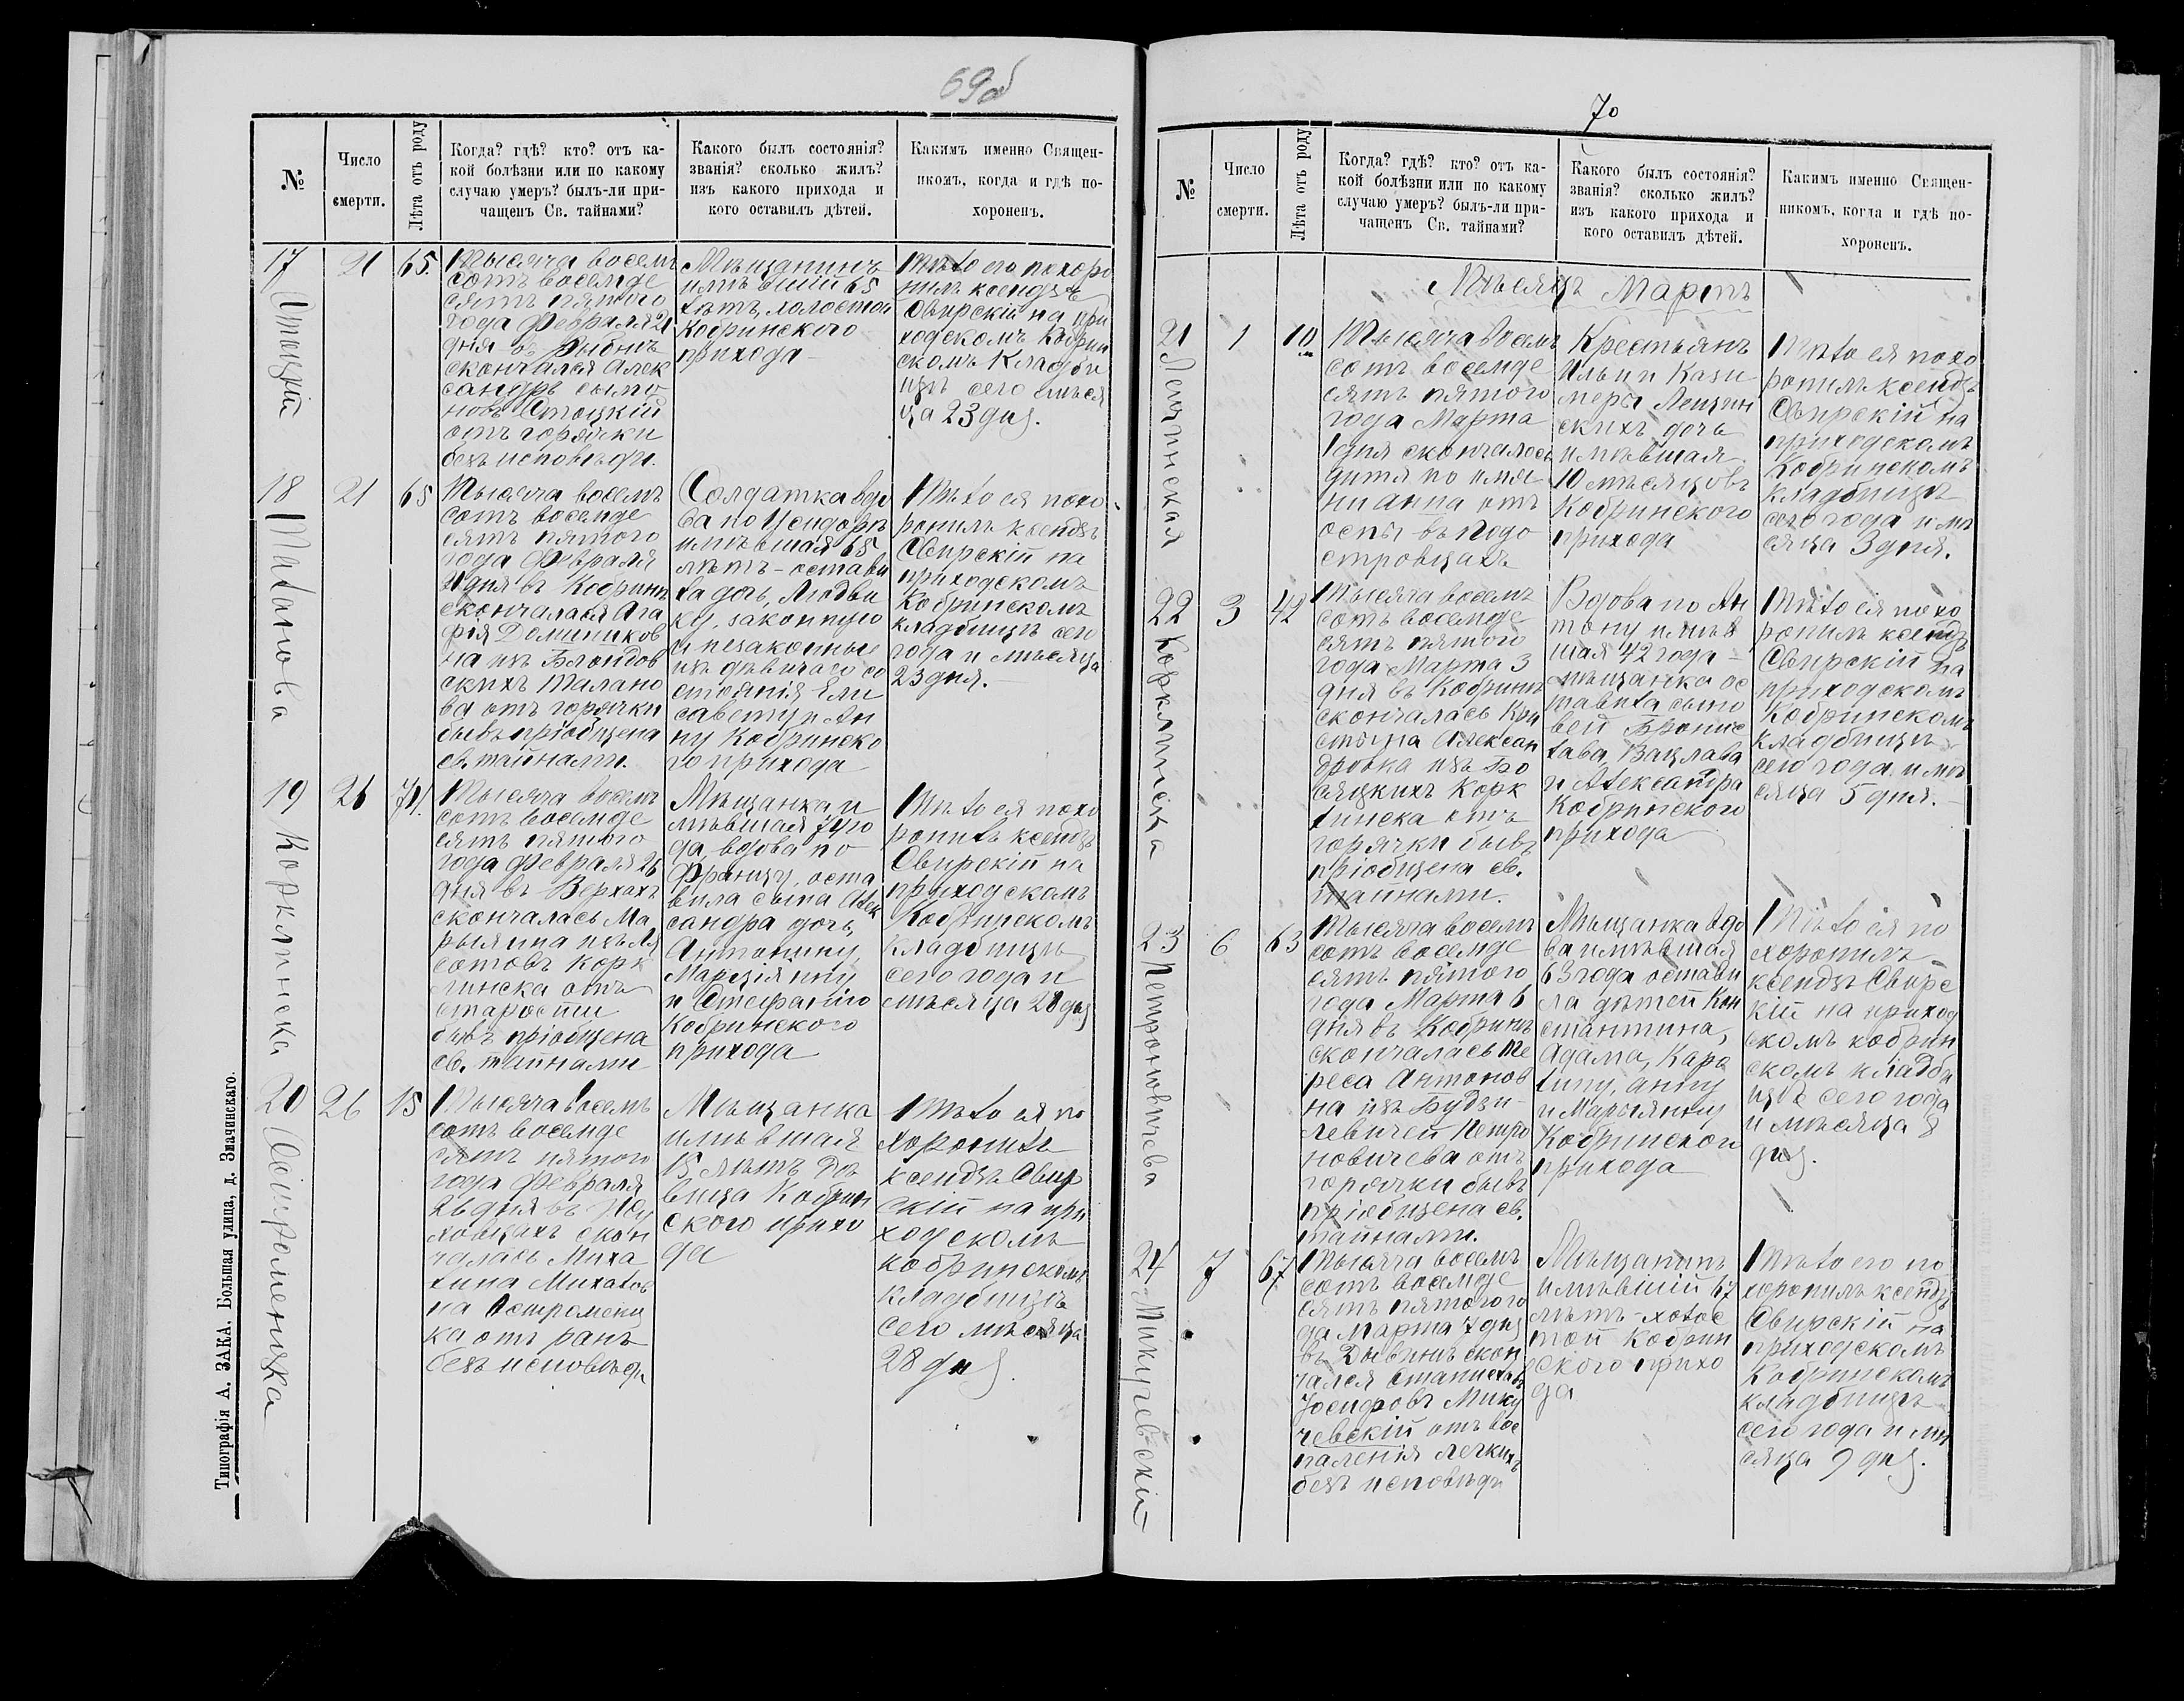 69об
№
Число
смерти.
Лѣта отъ роду
Когда? гдѣ? кто? отъ ка-
кой болѣзни или по какому
случаю умеръ? былъ-ли при-
чащенъ Св. тайнами?
Какого былъ состоянія?
званія? сколько жилъ?
изъ какого прихода и
кого оставилъ дѣтей.
Какимъ именно Священ-
никомъ, когда и гдѣ по-
хороненъ.
17
Стоцкій
21
65.
Тысяча восемь
сотъ восемде
сятъ пятого
года Февраля 21
дня въ Рыбнѣ
скончался Алек
сандръ сымо
новъ Стоцкій
отъ горячки
безъ исповѣди.
Мѣщанинъ
имѣвшій 65
лѣтъ, холостой
Кобринского
прихода
Тѣло его похоро
нилъ ксендзъ
Свирскій на при
ходскомъ Кобрин
скомъ Кладби
щѣ сего мѣся
ца 23 дня.
18
Таланова
21
65
Тысяча восемъ
сотъ восемде
сятъ пятого
года Февраля
21 дня въ Кобринѣ
скончалася Ага
фія Домиников
на изъ Блондов
скихъ Талано
ва отъ горячки
бывъ пріобщена
св. тайнами.
Солдатка вдо
ва по Ѳеодорѣ
имѣвшая 65
лѣтъ - остави
ла дочь, Людви
ку, законную
и незаконные
изъ дѣвичаго со
стоянія Ели
савету и Ан
ну Кобринско
го прихода
Тѣло ея похо
ронилъ ксендзъ
Свирскій на
приходскомъ
Кобринскомъ
кладбищѣ сего
года и мѣсяца
23 дня.
19
Корклинска
26
71.
Тысяча восемъ
сотъ восемде
сятъ пятого
года Февраля 26
дня въ Верхахъ
скончалась Ма
рыянна изъ Ля
сотовъ Корк
линска отъ
старости
бывъ пріобщена
св. тайнами
Мѣщанка и
мѣвшая 71 го
да, вдова по
Францу, оста
вила сына Алек
сандра дочь,
Антонину,
Марціянну
и Стефанію
Кобринского
прихода
Тѣло ея похо
ронилъ ксендзъ
Свирскій на
приходскомъ
Кобринскомъ
кладбищѣ
сего года и
мѣсяца 28 дня
20
Остромецка
26
15
Тысяча восемъ
сотъ восемде
сятъ пятого
года Февраля
26 дня въ
ховцахъ скон
чалась Миха
лина Михалов
на Остромецк
ка отъ ранъ
безъ исповѣди
Мѣщанка
имѣвшая
15 лѣтъ дѣ
вица Кобрин
ского прихо
да
Тѣло ея по
хоронилъ
ксендзъ Свир
скій на при
ходскомъ
кобринскомъ
кладбищѣ
сего мѣсяца
28 дня.
Типографія А. ЗАКА. Большая улица, д. Значинскаго.
70
№
Число
смерти.
Лѣта отъ роду
Когда? гдѣ? кто? отъ ка-
кой болѣзни или по какому
случаю умеръ? былъ-ли при-
чащенъ Св. тайнами?
Какого былъ состоянія?
званія? сколько жилъ?
изъ какого прихода и
кого оставилъ дѣтей.
Какимъ именно Священ-
никомъ, когда и гдѣ по-
хороненъ.
Мѣсяцъ Мартъ
21
Лещинская
1
10
м
Тысяча восемъ
сотъ восемде
сятъ пятого
года Марта
1 дня скончалось
дитя по име
ни анна отъ
оспы въ Подо
стровцахъ
Крестьянъ
Ильи и Кази
меры Лещин
скихъ дочь
имѣвшая
10 мѣсяцовъ
Кобринского
прихода
Тѣло ея похо
ронилъ ксендзъ
Свирскій на
приходскомъ
Кобринскомъ
кладбищѣ
сего года и мѣ
сяца 3 дня.
22
Корклинска
3
42
Тысяча восемъ
сотъ восемде
сятъ пятого
года Марта 3
дня въ Кобринѣ
скончалась Кри
стына Алексан
дровна изъ Бо
сяцкихъ Корк
линска отъ
горячки бывъ
пріобщена св.
тайнами.
Вдова по Ан
тону имѣв
шая 42 года -
мѣщанка ос
тавила сыно
вей Бронис
лава, Вацлава
и Александра
Кобринского
прихода
Тѣло ея похо
ронилъ ксендзъ
Свирскій на
приходскомъ
Кобринскомъ
кладбищѣ
сего года и мѣ
сяца 5 дня.
23
Петроновичева
6
63
Тысяча восемъ
сотъ восемде
сятъ пятого
года Марта 6
дня въ Кобринѣ
скончалась Те
реса Антонов
на изъ Будзи-
левичей Петро
новичева отъ
горячки бывъ
пріобщена св.
тайнами.
Мѣщанка вдо
ва имѣвшая
63 года остави
ла дѣтей Кон
стантина,
Адама, Каро
лину, анну
и Марыянну
Кобринского
прихода
Тѣло ея по
хоронилъ
ксендзъ Свирс
кій на приход
скомъ кобрин
скомъ кладби
щѣ сего года
и мѣсяца 8
дня.
24
Микучевскій
7
67
Тысяча восемъ
сотъ восемде
сятъ пятого го
да Марта 7 дня
въ Дывинѣ скон
чался Станиславъ
Іосифовъ Мику
чевскій отъ вос
паленія легкихъ
безъ исповѣди
Мѣщанинъ
имѣвшій 67
лѣтъ - холос
той Кобрин
ского прихо
да
Тѣло его по
хоронилъ ксендзъ
Свирскій на
приходскомъ
Кобринскомъ
кладбищѣ
сего года и мѣ
сяца 9 дня.